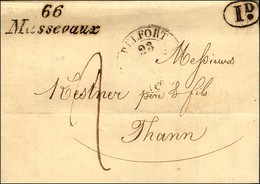 66
Massevaux
BELFORT
23
1D.
Messieurs
Kestner père & fils
Thann
2